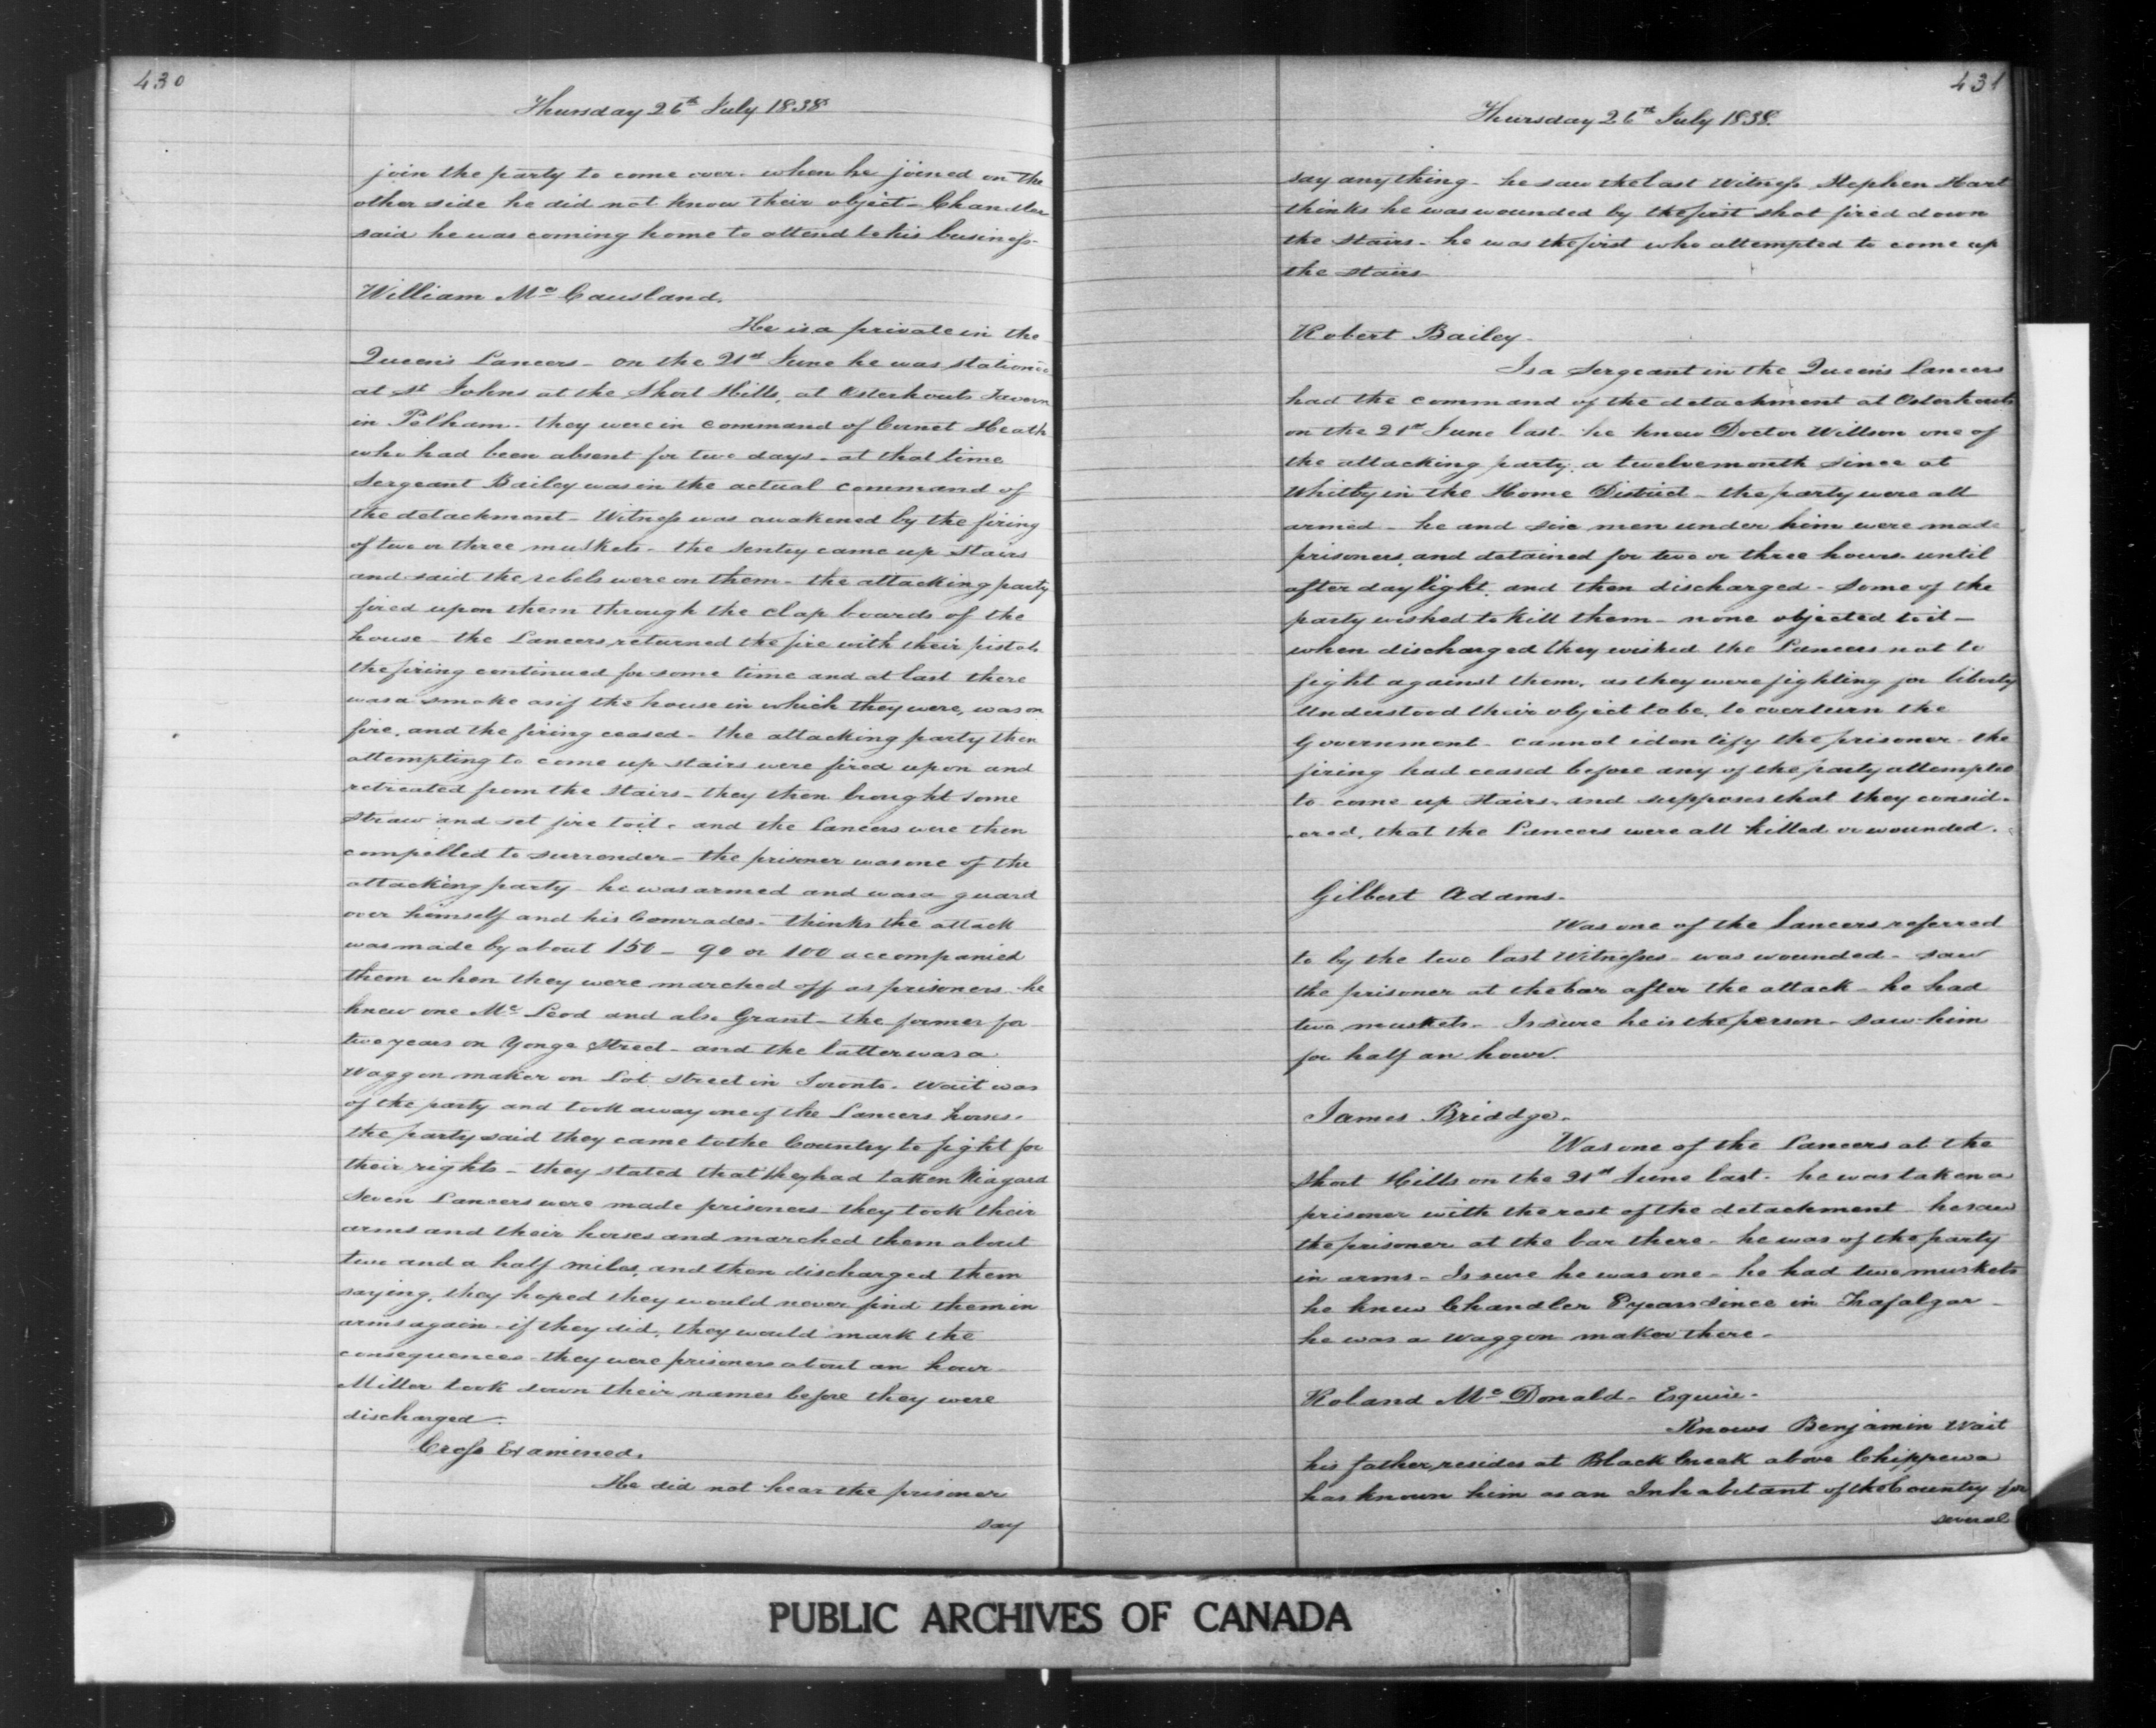 430
Thursday 26th July 1838
join the party to come over. when he joined on the
other side he did not know their object - Chandler
said he was coming home to attend to his business.
William Mc Causland.
He is a private in the
Queen's Lancers - on the 21st June he was stationed
at St Johns at the Short Hills, at Osterhouts Tavern
in Pelham - they were in command of Cornet Heath
who had been absent for two days - at that time
Sergeant Bailey was in the actual command of
the detachment - Witness was awakened by the firing
of two or three muskets - the sentry came up stairs
and said the rebels were on them - the attacking party
fired upon them through the clap boards of the
house - the Lancers returned the fire with their pistols
the firing continued for some time and at last there
was a smoke as if the house in which they were, was on
fire, and the firing ceased - the attacking party then
attempting to come up stairs were fired upon and
retreated from the stairs - they then brought some
straw and set fire to it - and the Lancers were then
compelled to surrender - the prisoner was one of the
attacking party - he was armed and was a guard
over himself and his Comrades - thinks the attack
was made by about 150 - 90 or 100 accompanied
them when they were marched off as prisoners - he
knew one Mc Leod and also Grant - the former for
two years on Yonge Street - and the latter was a
Waggon maker on Lot street in Toronto. Wait was
of the party and took away one of the Lancers horses.
the party said they came to the Country to fight for
their rights - they stated that they had taken Niagara
Seven Lancers were made prisoners - they took their
arms and their horses and marched them about
two and a half miles, and then discharged them
saying, they hoped they would never find them in
arms again - if they did, they would mark the
consequences - they were prisoners about an hour -
Miller took down their names before they were
discharged -
Cross Examined.
He did not hear the prisoner
say
431
Thursday 26th July 1838.
say anything - he saw the last Witness Stephen Hart
thinks he was wounded by the first shot fired down
the stairs - he was the first who attempted to come up
the stairs
Robert Bailey -
Is a Sergeant in the Queen's Lancers
had the command of the detachment at Osterhouts
on the 21st June last - he knew Doctor Willson one of
the attacking party, a twelvemonth since at
Whitby in the Home District - the party were all
armed - he and six men under him were made
prisoners, and detained for two or three hours until
after daylight, and then discharged - Some of the
party wished to kill them - none objected to it -
when discharged they wished the Lancers not to
fight against them, as they were fighting for liberty
Understood their object to be, to overturn the
Government - cannot identify the prisoner - the
firing had ceased before any of the party attempted
to come up stairs, and supposes that they consid-
-ered, that the Lancers were all killed or wounded.
Gilbert Adams.
Was one of the Lancers referred
to by the two last Witnesses - was wounded - saw
the prisoner at the bar after the attack - he had
two muskets - Is sure he is the person - saw him
for half an hour.
James Briddge.
Was one of the Lancers at the
Short Hills on the 21st June last - he was taken a
prisoner with the rest of the detachment - he saw
the prisoner at the bar there - he was of the party
in arms - Is sure he was one - he had two muskets
he knew Chandler 8 years since in Trafalgar -
he was a waggon maker there -
Roland Mc Donald - Esquire -
Knows Benjamin Wait
his father resides at Black Creek above Chippewa
has known him as an Inhabitant of the Country for
several
PUBLIC ARCHIVES OF CANADA